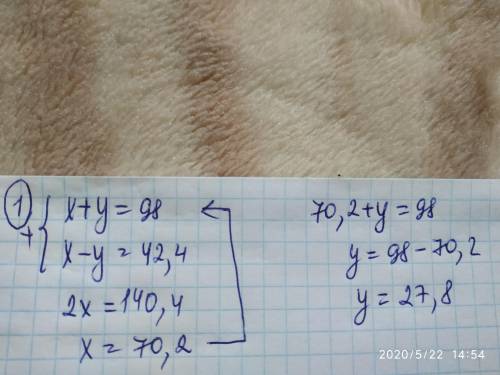 1
+ { x+y = 98
x-y = 42,4
2x = 140,4
x = 70,2
70,2+y = 98
y = 98-70,2
y = 27,8
2020/5/22 14:54